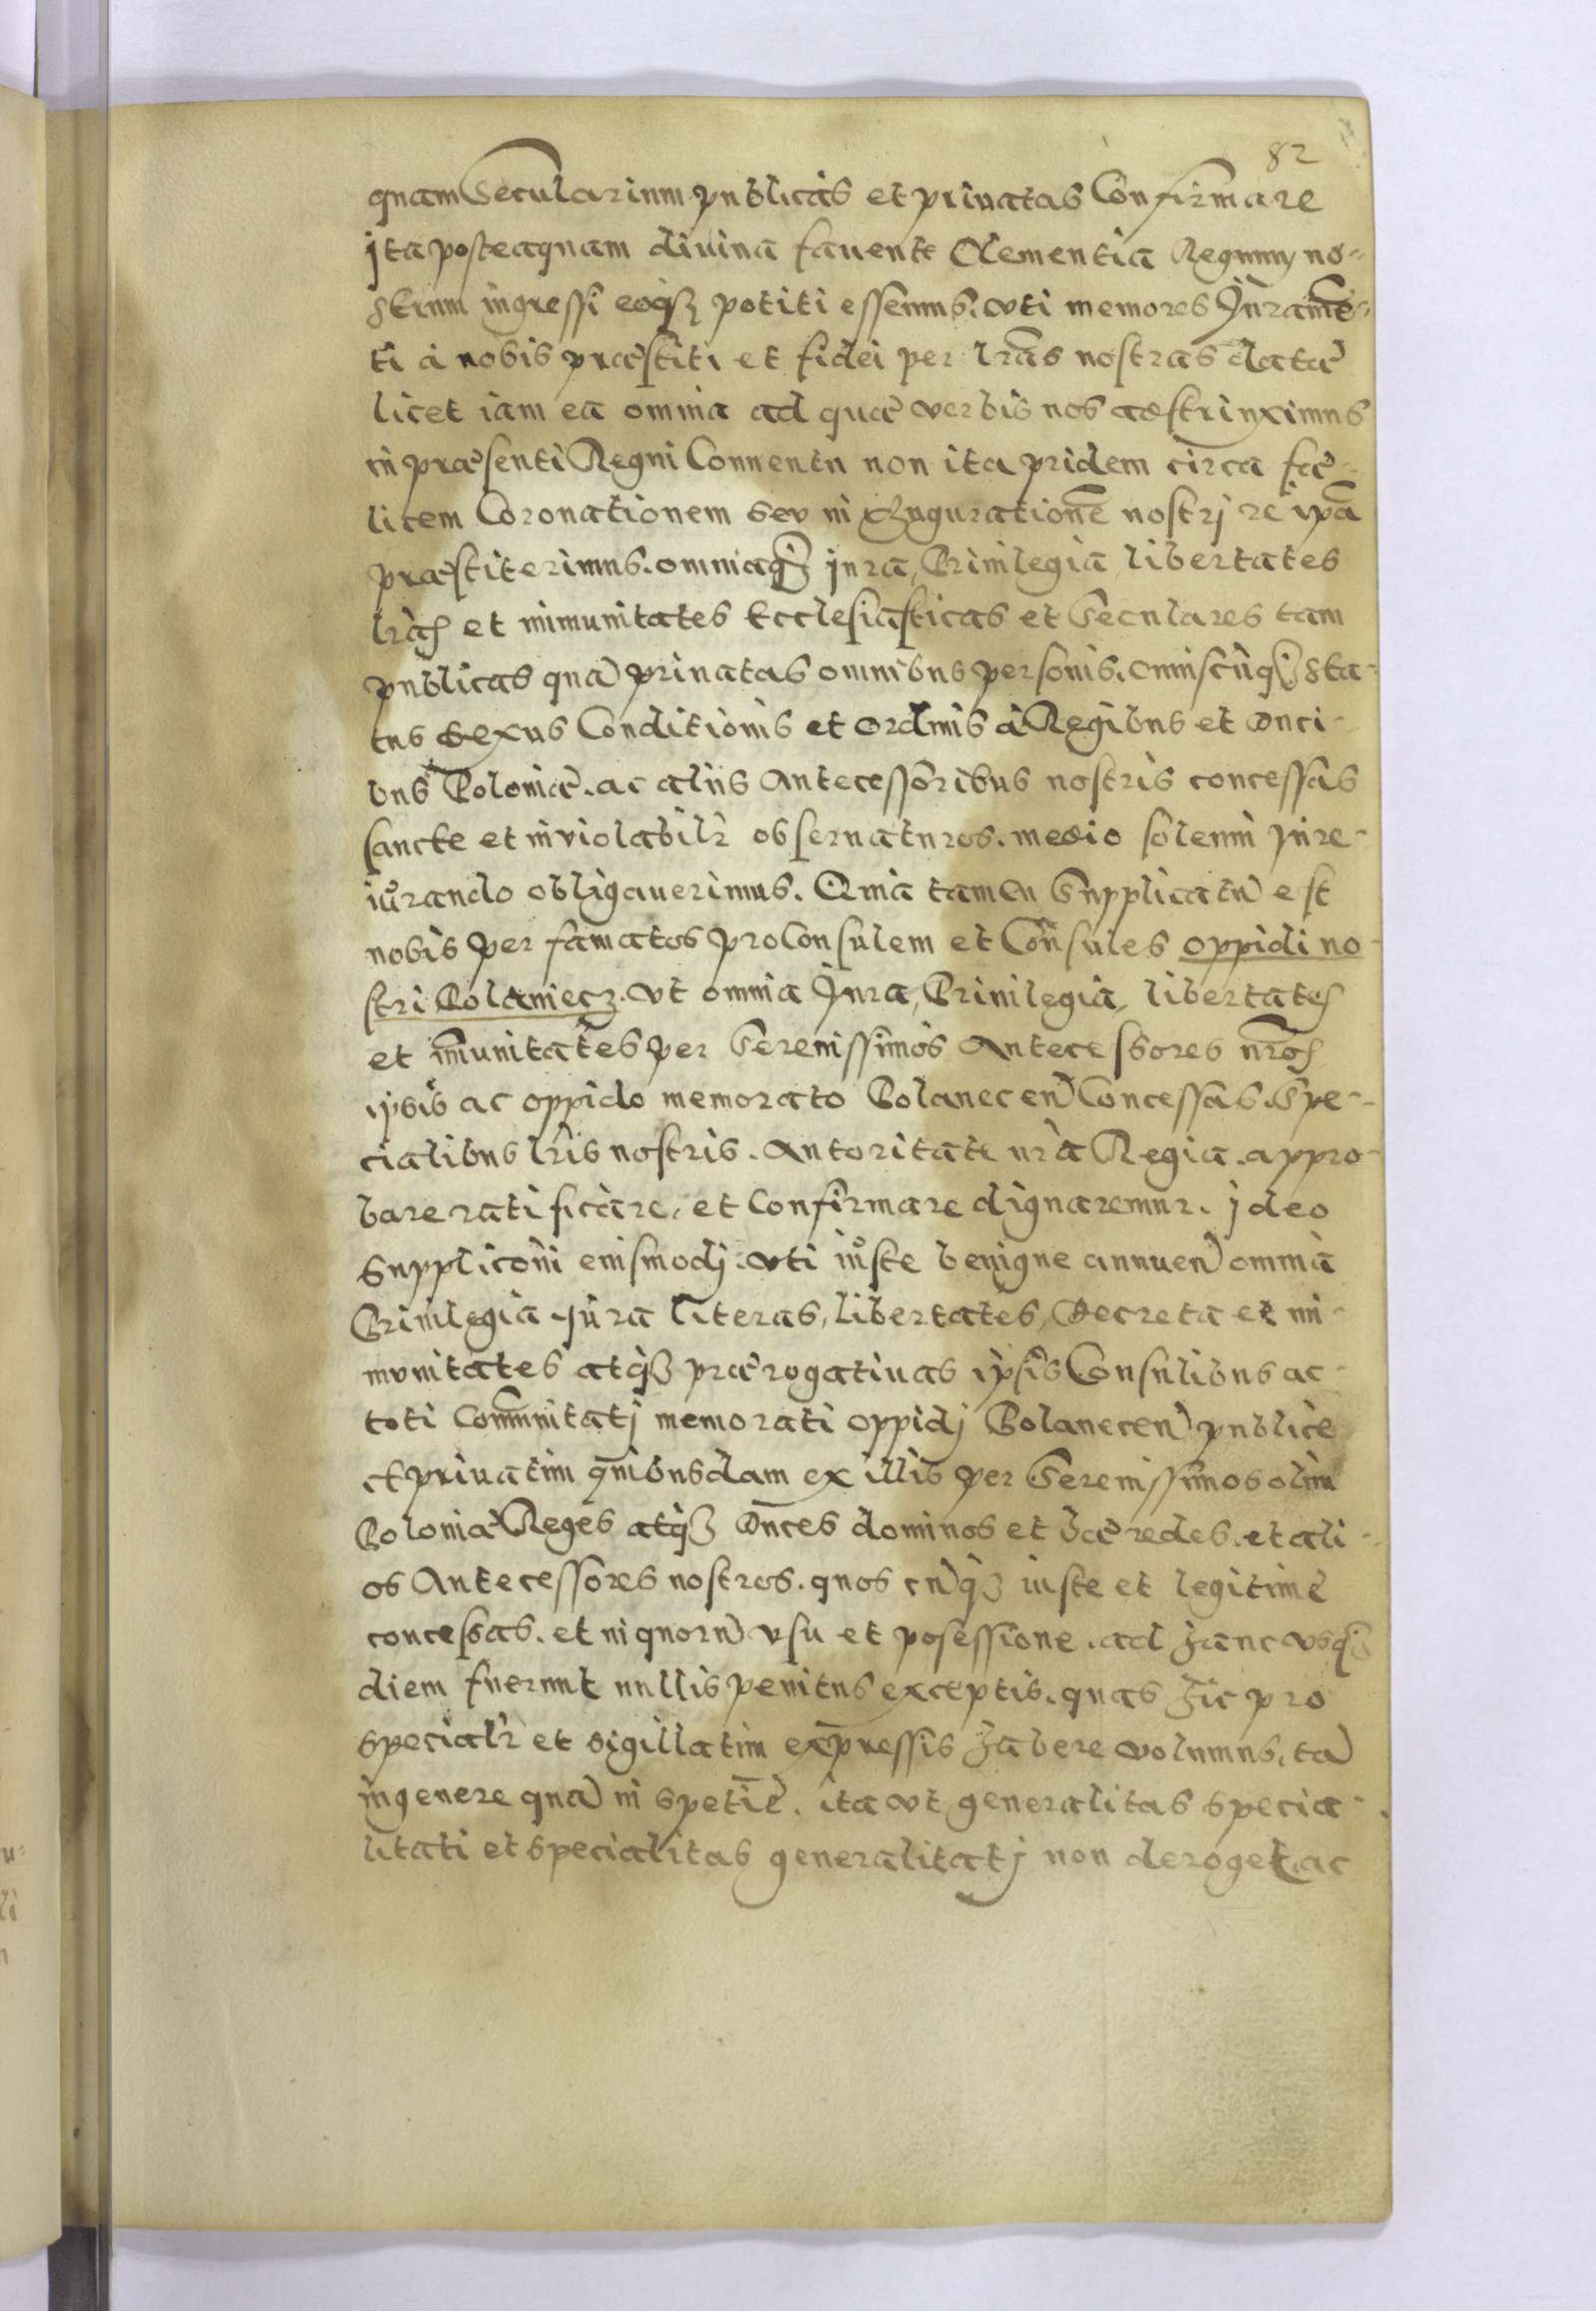 82
quam Secularium publicas et priuatas Confirmare
jta posteaquam diuina fauente Clementia Regnum no-
strum ingressi eoq3 potiti essemus. vti memores Juramē-
ti a nobis præstiti et fidei per lr̃as nostras datæ
licet iam ea omnia ad quæ verbis nos adstrinximus
in præsenti Regni Conuentu non ita pridem circa fæ-
licem Coronationem seu in augurationē nostrj re ipā
præstiterimus. omniaq3 jura, Priuilegia, libertates
lr̃as et immunitates Ecclesiasticas et Seculares tam
publicas quā priuatas omnibus personis. cuiuscūq3 sta-
tus sexus Conditionis et ordinis à Regibus et Duci-
bus Poloniæ. ac aliis Antecessoribus nostris concessas
sancte et inviolabilr̃ obseruaturos. medio solenni Jure-
iůrando obligauerimus. Quia tamen Supplicatū est
nobis per famatos proConsulem et Consules oppidi no-
stri Polaniecz. vt omnia Jura, Priuilegia, libertates
et im̄unitates per Serenissimos Antecessores nr̃os
ipsis ac oppido memorato Polanecen̄ Concessas. Spe-
cialibus lr̃is nostris. Autoritate nr̃a Regia. appro-
bare ratificare, et Confirmare dignaremur. jdeo
Supplicōni eiusmodj. vti iůste benigne annuen̄ omnia
Priuilegia Jura literas, libertates, Decreta et im-
munitates atq3 prærogatiuas ipsis Consulibus ac
toti Com̄unitatj memorati oppidj Polanecen̄ publice
et priuatim quibusdam ex illis per Serenissimos olim
Poloniæ Reges atq3 Duces dominos et hæredes. et ali-
os Antecessores nostros. quoscūq3 iuste et legitime
concessas. et in quorū vsu et posessione. ad hanc vsq3
diem fuerunt nullis penitus exceptis. quas hic pro
specialr̃ et sigillatim expressis habere volumus. tā
in genere quā in spetie. ita vt generalitas specia-
litati et specialitas generalitatj non deroget. ac